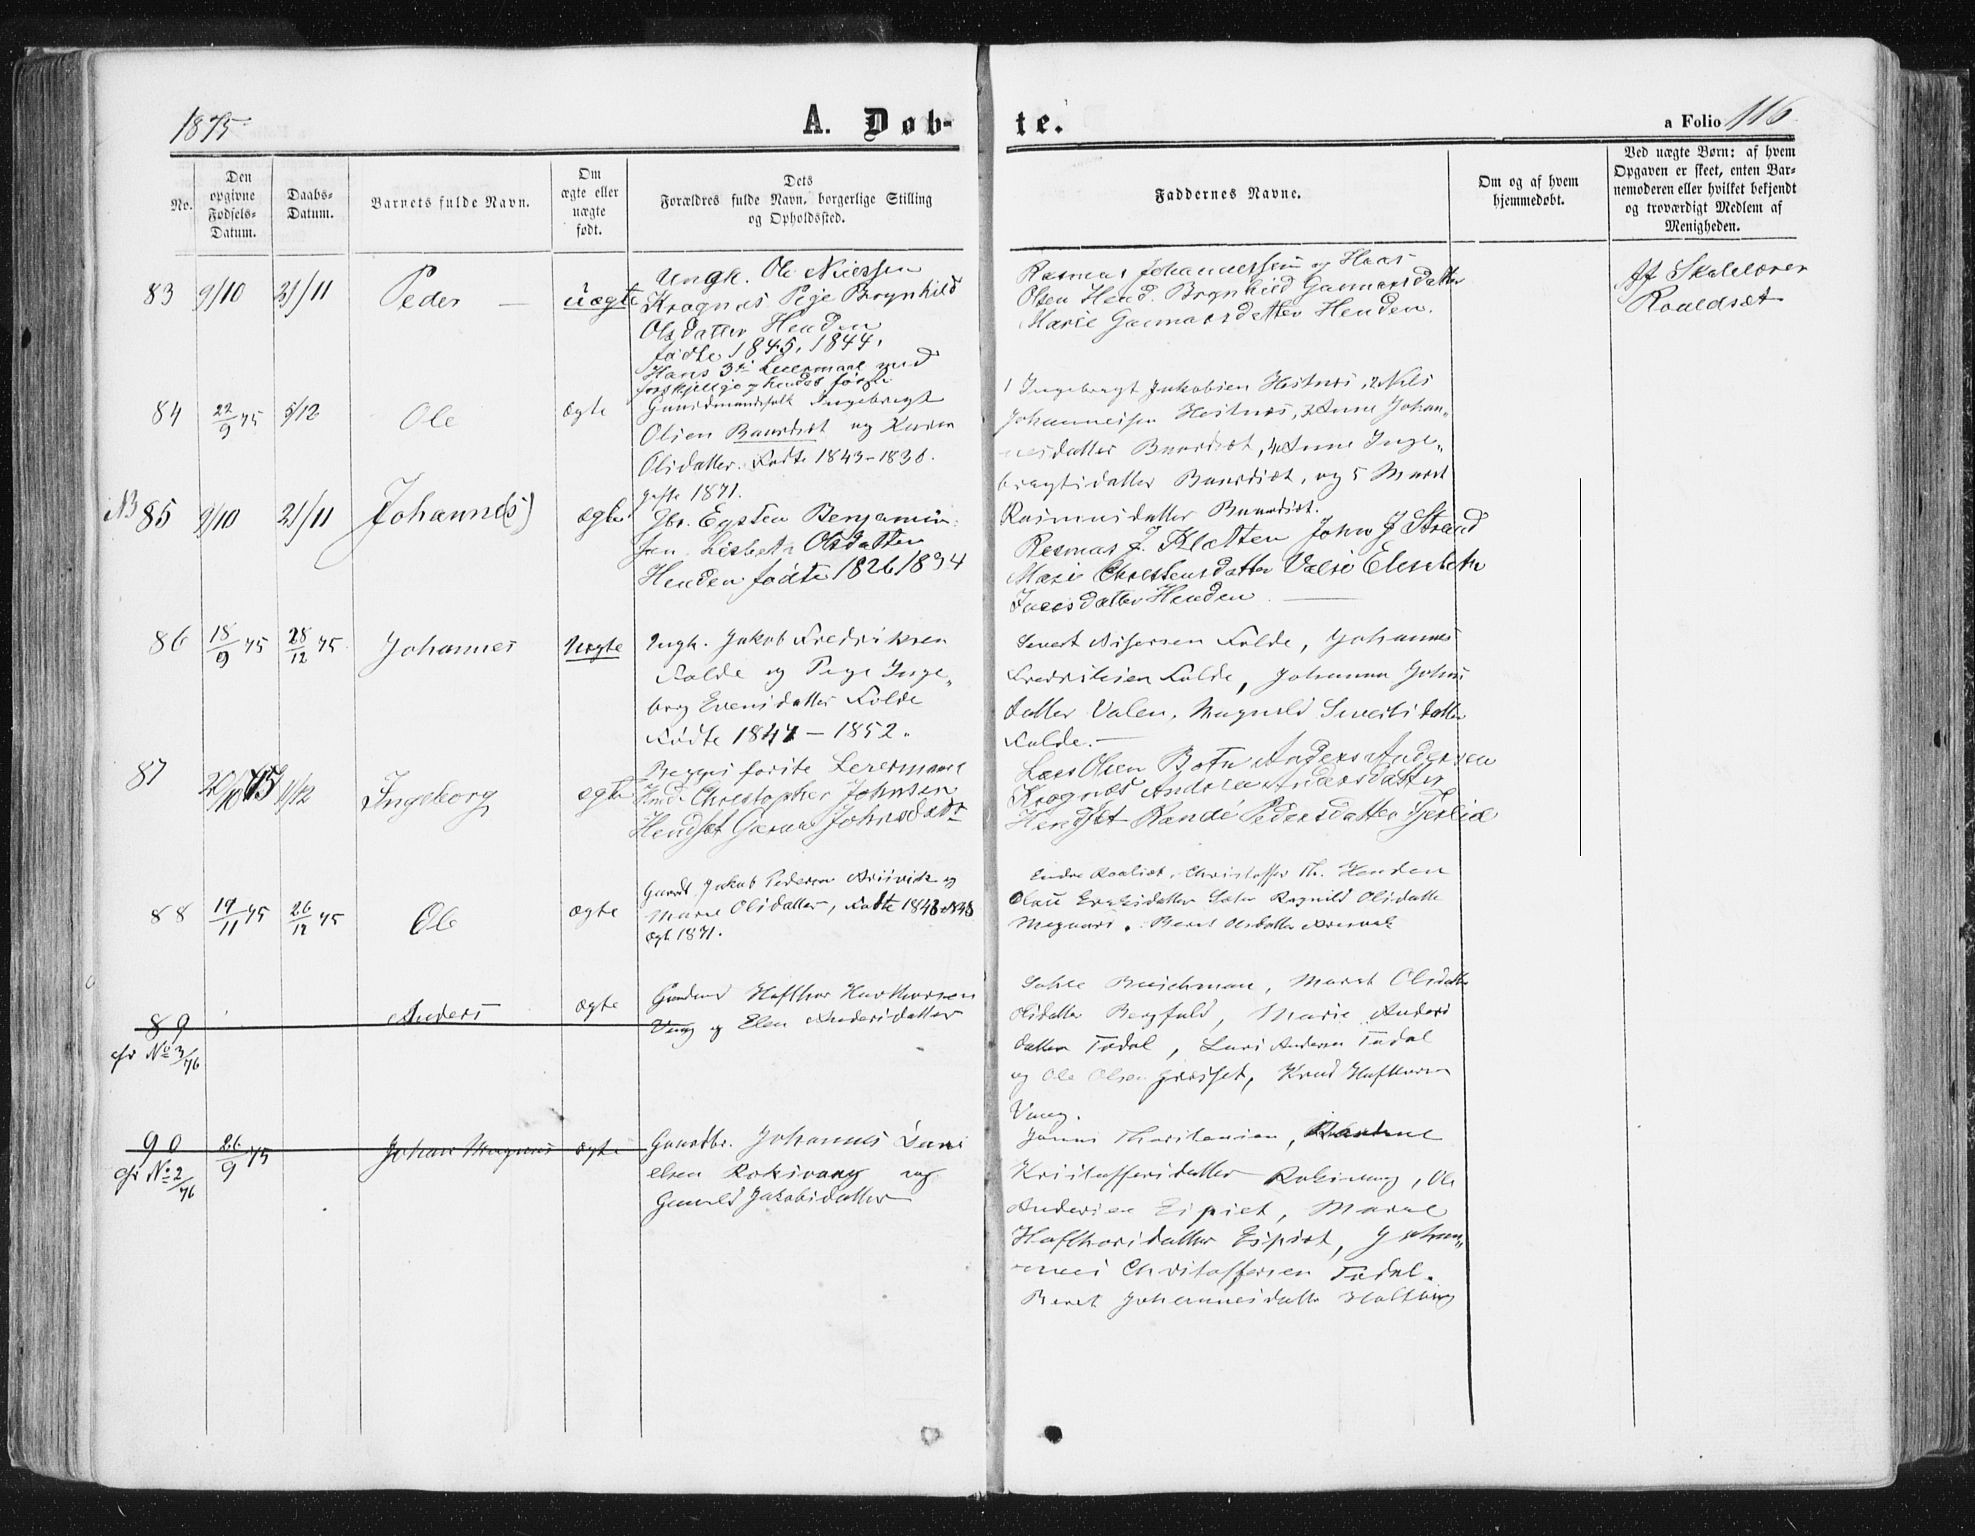 1875
A. Døb-
te.
a Folio 116
No.
Den opgivne Fødsels-Datum.
Daabs-Datum.
Barnets fulde Navn.
Om ægte eller uægte født.
Dets
Forældres fulde Navn, borgerlige Stilling
og Opholdssted.
Faddernes Navne.
Om og af hvem
hjemmedøbt.
Ved uægte Børn: af hvem
Opgaven er skeet, enten Bar-
nemoderen eller hvilket bekjendt
og troværdigt Medlem af
Menigheden.
83 9/10 21/11 Peder — uægte
Ungk. Ole
Kragnæs Pige Brynhild
Olsdatter Henden
fødte 1845, 1844,
Hans 3die Leiermaal med
forskjellige og hendes første
Rasmus Johannessen og Hans
Olsen Hend. Brynhild Gunnarsdatter
Marie Gunnarsdatter Henden.
Af Skolelærer
Roaldsæt
84 22/9 75 5/12 Ole ægte
Gaardmandsfolk Ingebregt
Olsen Baardsæt og Karen
Olsdatter. Fødte 1843-1838.
gifte 1871.
1 Ingebregt Jakobsen Hestnes, 2 Nils
Johannessen Hestnes, 3 Anne Johan-
nesdatter Baardsæt, 4 Anne Inge-
bregtsdatter Baardsæt, og 5 Marit
Rasmusdatter Baardsæt.
NB 85 9/10 21/11 Johannes) ægte
Gbr. Eysten Benjamin-
sen Lisbet Olsdatter
Henden fødte 1826 1834
Rasmus J. Klætten John J Strand
Marie Christensdatter Valsø Elisabeth
datter Henden —
86 18/9 75 28/12 75 Johannes Uægte
Ungk. Jakob Fredriksen
Folde og Pige Inge-
borg Evensdatter Folde
Fødte 1847 - 1852.
Begges første Leiermaal
Sivert Folde, Johannes
Fredriksen Folde, Johanna Johns
datter Valen, Magnild Sivertsdatter
Folde. —
87 20/10 75 11/12 Ingeborg ægte
Christopher Johnsen
Hendset Johnsdatr
Lars Olsen Botn Anders Andersen
Kragnæs Andrea Andersdatter
Hendset Randi Pedersdatter
88 17/11 75 26/12 75 Ole ægte
Gaardb. Jakob Pedersen og
Marie Olsdatter, Fødte 1848
Ægt. 1871.
Endre Roalsæt, Christoffer Th. Henden
Ragnild Olsdatter
Beret Olsdatter
89 Anders ægte
cfr No 3/76
Gaardmd Hafthor Hafthorsen
Vaag og Elen Andersdatter
Buschman, Marit Olsdatter
Olsdatter Bergfald, Marie Anders
datter Todal, Lars Andersen Todal
og Ole Olsen, Knud Hafthorsen
Vaag.
90 26/9 75 Johan Magnus ægte
cfr No 2/76
Gaardbr. Johannes Dani
elsen Roksvaag og
Gunild Jakobsdatter
Kristoffersdatter Roksvaag, Ole
Andersen Espset, Marit
Hafthorsdatter Espset, Johan-
nes Christoffersen Todal.
Beret Johannesdatter